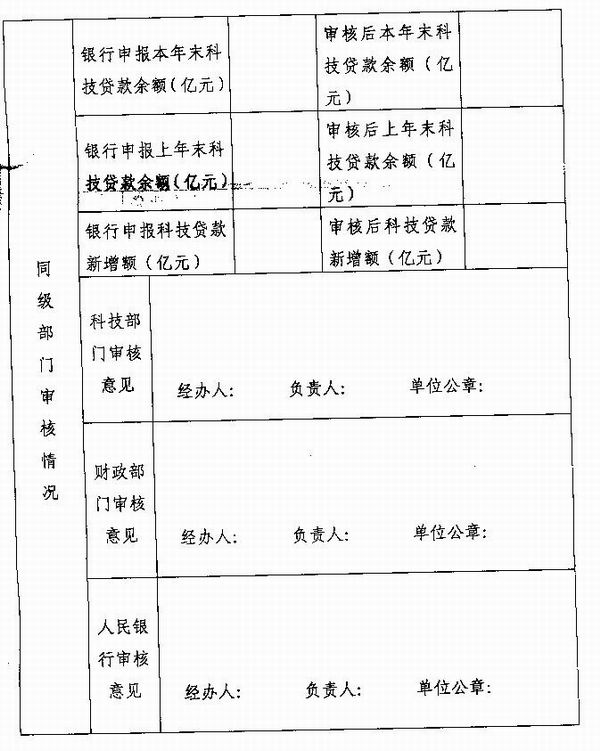 同级部门审核情况
银行申报本年末科
技贷款余额(亿元)
审核后本年末科
技贷款余额(亿
元)
银行申报上年末科
技贷款余额(亿元)
审核后上年末科
技贷款余额(亿
元)
银行申报科技贷款
新增额(亿元)
审核后科技贷款
新增额(亿元)
科技部
门审核
意见
经办人: 负责人: 单位公章:
财政部
门审核
意见
经办人: 负责人: 单位公章:
人民银
行审核
意见
经办人: 负责人: 单位公章: